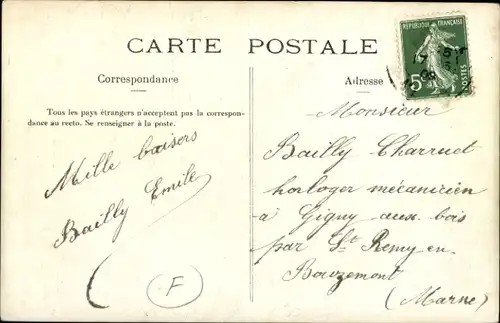 CARTE POSTALE
Correspondance
Tous les pays étrangers n'acceptent pas la correspon-
dance au recto. Se renseigner à la poste.
Mille baisers
Bailly Emile
F
Adresse
REPUBLIQUE FRANÇAISE
5
POSTES
Monsieur
Bailly Charruet
horloger mécanicien
à Gigny aux bois
par St Remy en
Bouzemont
(Marne)